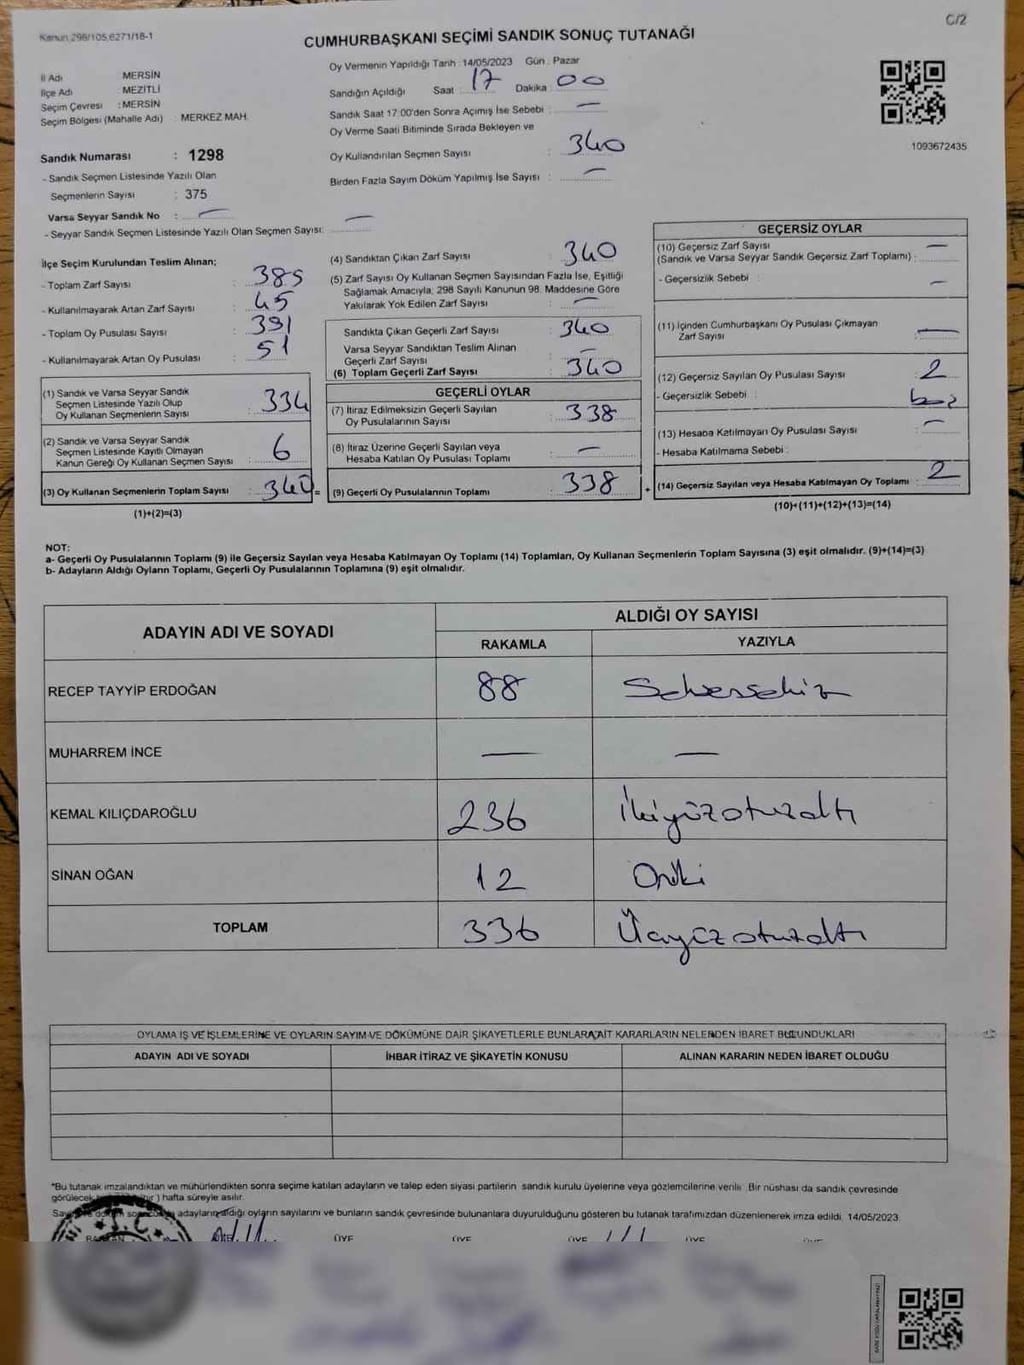 C/2
Kanun 298/105,6271/18-1
CUMHURBAŞKANI SEÇİMİ SANDIK SONUÇ TUTANAĞI
İl Adı MERSİN
İlçe Adı MEZİTLİ
Seçim Çevresi : MERSİN
Seçim Bölgesi (Mahalle Adı) MERKEZ MAH.
Sandık Numarası : 1298
- Sandık Seçmen Listesinde Yazılı Olan
Seçmenlerin Sayısı : 375
Varsa Seyyar Sandık No : —
- Seyyar Sandık Seçmen Listesinde Yazılı Olan Seçmen Sayısı: —
Oy Vermenin Yapıldığı Tarih : 14/05/2023 Gün : Pazar
Sandığın Açıldığı Saat 17 Dakika 00
Sandık Saat 17:00'den Sonra Açımış İse Sebebi : —
Oy Verme Saati Bitiminde Sırada Bekleyen ve
Oy Kullandırılan Seçmen Sayısı : 340
Birden Fazla Sayım Döküm Yapılmış İse Sayısı : —
1093672435
İlçe Seçim Kurulundan Teslim Alınan;
- Toplam Zarf Sayısı : 385
- Kullanılmayarak Artan Zarf Sayısı : 45
- Toplam Oy Pusulası Sayısı : 391
- Kullanılmayarak Artan Oy Pusulası : 51
(1) Sandık ve Varsa Seyyar Sandık
Seçmen Listesinde Yazılı Olup
Oy Kullanan Seçmenlerin Sayısı : 334
(2) Sandık ve Varsa Seyyar Sandık
Seçmen Listesinde Kayıtlı Olmayan
Kanun Gereği Oy Kullanan Seçmen Sayısı : 6
(3) Oy Kullanan Seçmenlerin Toplam Sayısı : 340 =
(1)+(2)=(3)
(4) Sandıktan Çıkan Zarf Sayısı : 340
(5) Zarf Sayısı Oy Kullanan Seçmen Sayısından Fazla İse, Eşitliği
Sağlamak Amacıyla; 298 Sayılı Kanunun 98. Maddesine Göre
Yakılarak Yok Edilen Zarf Sayısı : —
Sandıkta Çıkan Geçerli Zarf Sayısı : 340
Varsa Seyyar Sandıktan Teslim Alınan
Geçerli Zarf Sayısı : —
(6) Toplam Geçerli Zarf Sayısı : 340
GEÇERLİ OYLAR
(7) İtiraz Edilmeksizin Geçerli Sayılan
Oy Pusulalarının Sayısı : 338
(8) İtiraz Üzerine Geçerli Sayılan veya
Hesaba Katılan Oy Pusulası Toplamı : —
(9) Geçerli Oy Pusulalarının Toplamı : 338 +
GEÇERSİZ OYLAR
(10) Geçersiz Zarf Sayısı —
(Sandık ve Varsa Seyyar Sandık Geçersiz Zarf Toplamı) :
- Geçersizlik Sebebi : —
(11) İçinden Cumhurbaşkanı Oy Pusulası Çıkmayan
Zarf Sayısı : —
(12) Geçersiz Sayılan Oy Pusulası Sayısı : 2
- Geçersizlik Sebebi :
(13) Hesaba Katılmayan Oy Pusulası Sayısı : —
- Hesaba Katılmama Sebebi :
(14) Geçersiz Sayılan veya Hesaba Katılmayan Oy Toplamı : 2
(10)+(11)+(12)+(13)=(14)
NOT:
a- Geçerli Oy Pusulalarının Toplamı (9) ile Geçersiz Sayılan veya Hesaba Katılmayan Oy Toplamı (14) Toplamları, Oy Kullanan Seçmenlerin Toplam Sayısına (3) eşit olmalıdır. (9)+(14)=(3)
b- Adayların Aldığı Oyların Toplamı, Geçerli Oy Pusulalarının Toplamına (9) eşit olmalıdır.
ADAYIN ADI VE SOYADI
ALDIĞI OY SAYISI
RAKAMLA YAZIYLA
RECEP TAYYİP ERDOĞAN 88 Seksensekiz
MUHARREM İNCE — —
KEMAL KILIÇDAROĞLU 236 İkiyüzotuzaltı
SİNAN OĞAN 12 Oniki
TOPLAM 336 Üçyüzotuzaltı
OYLAMA İŞ VE İŞLEMLERİNE VE OYLARIN SAYIM VE DÖKÜMÜNE DAİR ŞİKAYETLERLE BUNLARA AİT KARARLARIN NELERDEN İBARET BULUNDUKLARI
ADAYIN ADI VE SOYADI İHBAR İTİRAZ VE ŞİKAYETİN KONUSU ALINAN KARARIN NEDEN İBARET OLDUĞU
*Bu tutanak imzalandıktan ve mühürlendikten sonra seçime katılan adayların ve talep eden siyasi partilerin sandık kurulu üyelerine veya gözlemcilerine verilir. Bir nüshası da sandık çevresinde
görülecek hafta süreyle asılır.
adayların aldığı oyların sayılarını ve bunların sandık çevresinde bulunanlara duyurulduğunu gösteren bu tutanak tarafımızdan düzenlenerek imza edildi. 14/05/2023
T.C.
ÜYE ÜYE ÜYE ÜYE